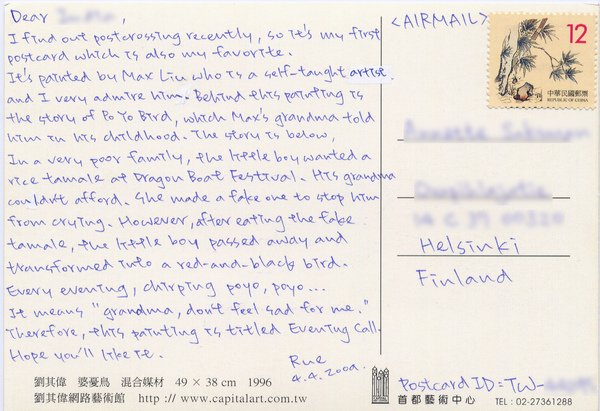 Dear
I find out postcrossing recently, so it's my first
postcard which is also my favorite.
It's painted by Max Liu who is a self-taught artist.
and I very admire him. Behind this painting is
the story of Po Yo Bird, which Max's grandma told
him in his childhood. The story is below,
In a very poor family, the little boy wanted a
rice tamale at Dragon Boat Festival. His grandma
couldn't afford. She made a fake one to stop him
from crying. However, after eating the fake
tamale, the little boy passed away and
transformed into a red-and-black bird.
Every evening, chirping poyo, poyo...
It means "grandma, don't feel sad for me."
Therefore, this painting is titled Evening Call.
Hope you'll like it.
Rue
4.4.2009.
劉其偉 婆憂鳥 混合媒材 49 × 38 cm 1996
劉其偉網路藝術館 http://www.capitalart.com.tw
<AIRMAIL>
12
中華民國郵票
REPUBLIC OF CHINA
Helsinki
Finland
Postcard ID: TW-
首都藝術中心 TEL：02-27361288